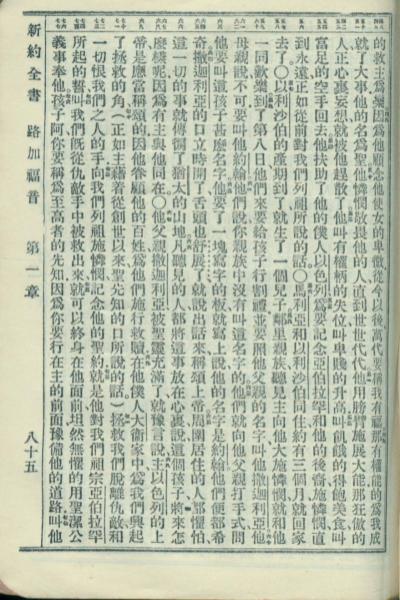 的救主爲樂因爲他顧念他使女的卑微從今以後萬代要稱我有福那有權能的爲我成
就了大事他的名爲聖他憐憫敬畏他的人直到世世代代他用膀臂施展大能那狂傲的
人正心裏妄想就被他趕散了他叫有權柄的失位叫卑賤的升高叫飢餓的得飽美食叫
富足的空手回去他扶助了他的僕人以色列爲要記念亞伯拉罕和他的後裔施憐憫直
到永遠正如從前對我們列祖所說的話○馬利亞和以利沙伯同住約有三個月就回家
去了○以利沙伯的產期到了就生了一個兒子鄰里親族聽見主向他大施憐憫就和他
一同歡樂到了第八日他們來要給孩子行割禮並要照他父親的名字叫他撒迦利亞他
母親說不可要叫他約翰他們說你親族中沒有叫這名字的他們就向他父親打手式問
他要叫這孩子甚麼名字他要了一塊寫字的板就寫上說他的名字是約翰他們便都希
奇撒迦利亞的口立時開了舌頭也舒展了就說出話來稱頌上帝周圍居住的人都懼怕
這一切的事就傳徧了猶太的山地凡聽見的人都將這事放在心裏說這個孩子將來怎
麼樣呢因爲有主與他同在○他父親撒迦利亞被聖靈充滿了就豫言說主以色列的上
帝是應當稱頌的因他眷顧他的百姓爲他們施行救贖在他僕人大衞家中爲我們興起
了拯救的角(正如主藉着從創世以來聖先知的口所說的話)拯救我們脫離仇敵和
一切恨我們之人的手向我們列祖施憐憫記念他的聖約就是他對我們祖宗亞伯拉罕
所起的誓叫我們旣從仇敵手中被救出來就可以終身在他面前坦然無懼的用聖潔公
義事奉他孩子阿你要稱爲至高者的先知因爲你要行在主的前面豫備他的道路叫他
新約全書 路加福音 第一章 八十五